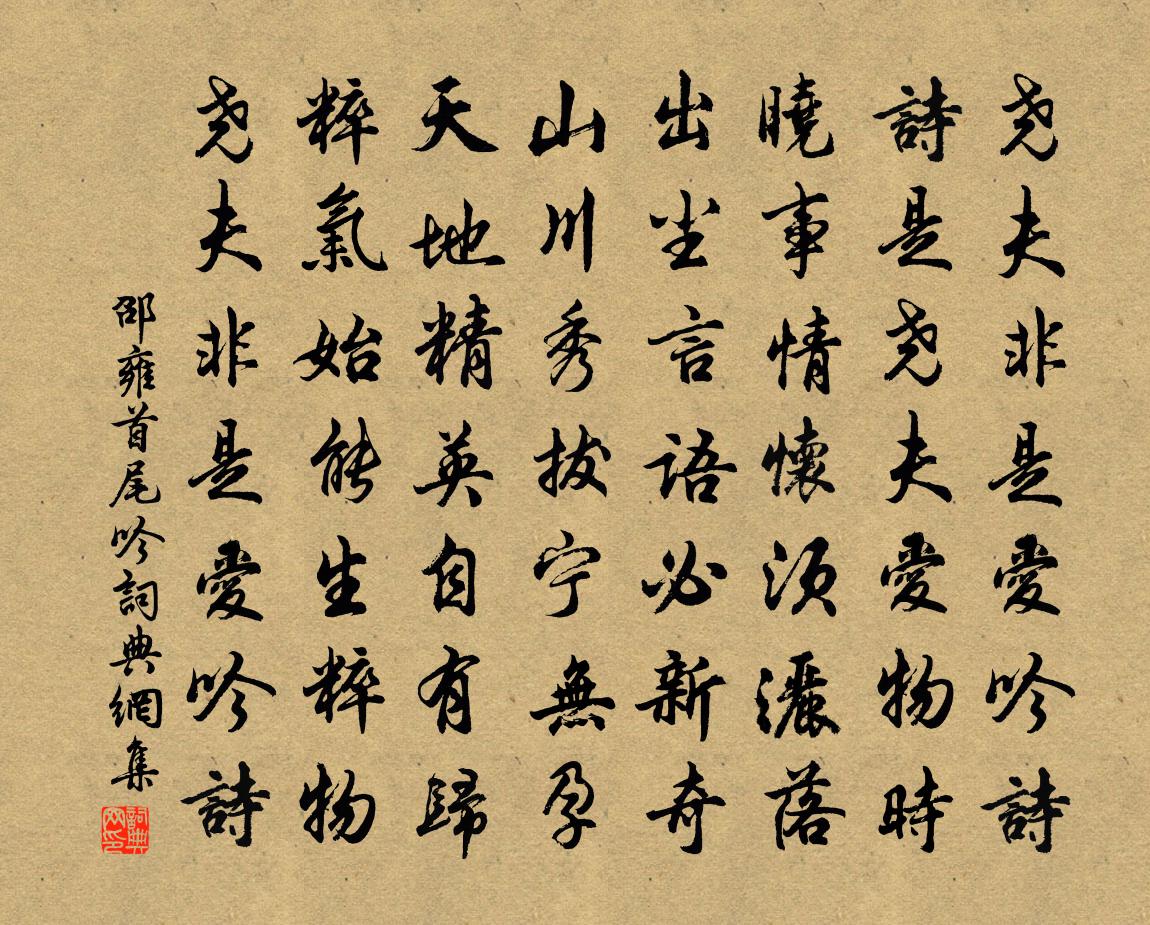 堯夫非是愛吟詩
詩是堯夫愛物時
曉事情懷須灑落
出尘言語必新奇
山川秀拔宁無孕
天地精英自有歸
粹氣始能生粹物
堯夫非是愛吟詩
邵雍首尾吟詞典網集
詞典网印